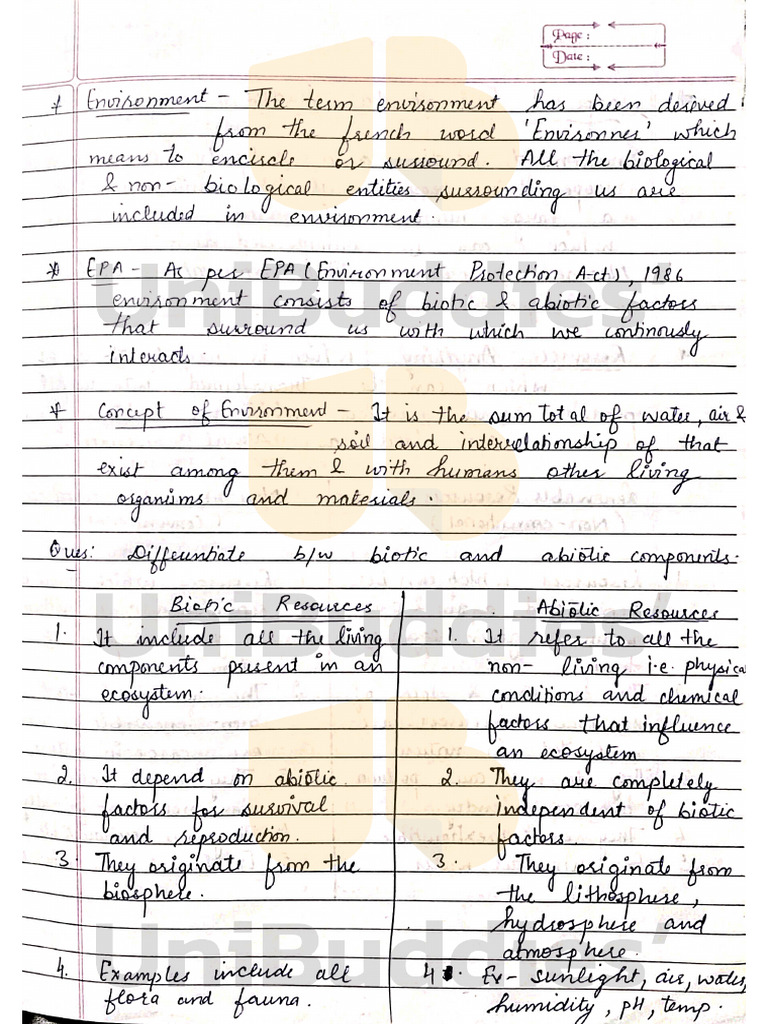 Page :
Date :
* Environment - The term environment has been derived
from the french word 'Environner' which
means to encircle or surround. All the biological
& non- biological entities surrounding us are
included in environment.
* EPA - As per EPA (Environment Protection Act), 1986
environment consists of biotic & abiotic factors
that surround us with which we continously
interacts
* Concept of Environment - It is the sum total of water, air &
soil and interrelationship of that
exist among them & with humans other living
organims and materials.
Ques: Differentiate b/w biotic and abiotic components.
Biotic Resources
1. It include all the living
components present in an
ecosystem.
2. It depend on abiotic
factors for survival
and reproduction.
3. They originate from the
biosphere.
4. Examples include all
flora and fauna.
Abiotic Resources
1. It refer to all the
non- living i.e. physical
conditions and chemical
factors that influence
an ecosystem
2. They are completely
independent of biotic
factors.
3. They originate from
the lithosphere,
hydrosphere and
atmosphere.
4. Ex- sunlight, air, water,
humidity, pH, temp.
UniBuddies'
UniBuddies'
UniBuddies'